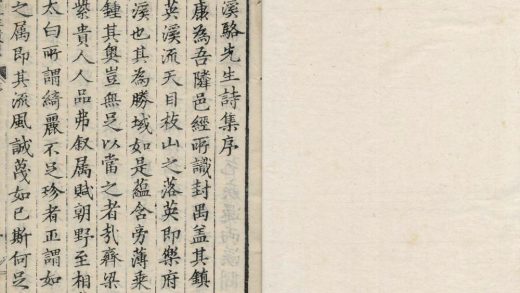 溪駱先生詩集序
康為吾隣邑經所識封禺盖其鎮
英溪流天目枝山之落英即樂府
溪也其為勝域如是蘊含旁薄乗
鍾其奥豈無足以當之者㢤齊梁
紫貴人人品弗叙属賦朝野至相
太白所謂綺麗不足珍者正謂如
之属即其流風誠蔑如已斯何足